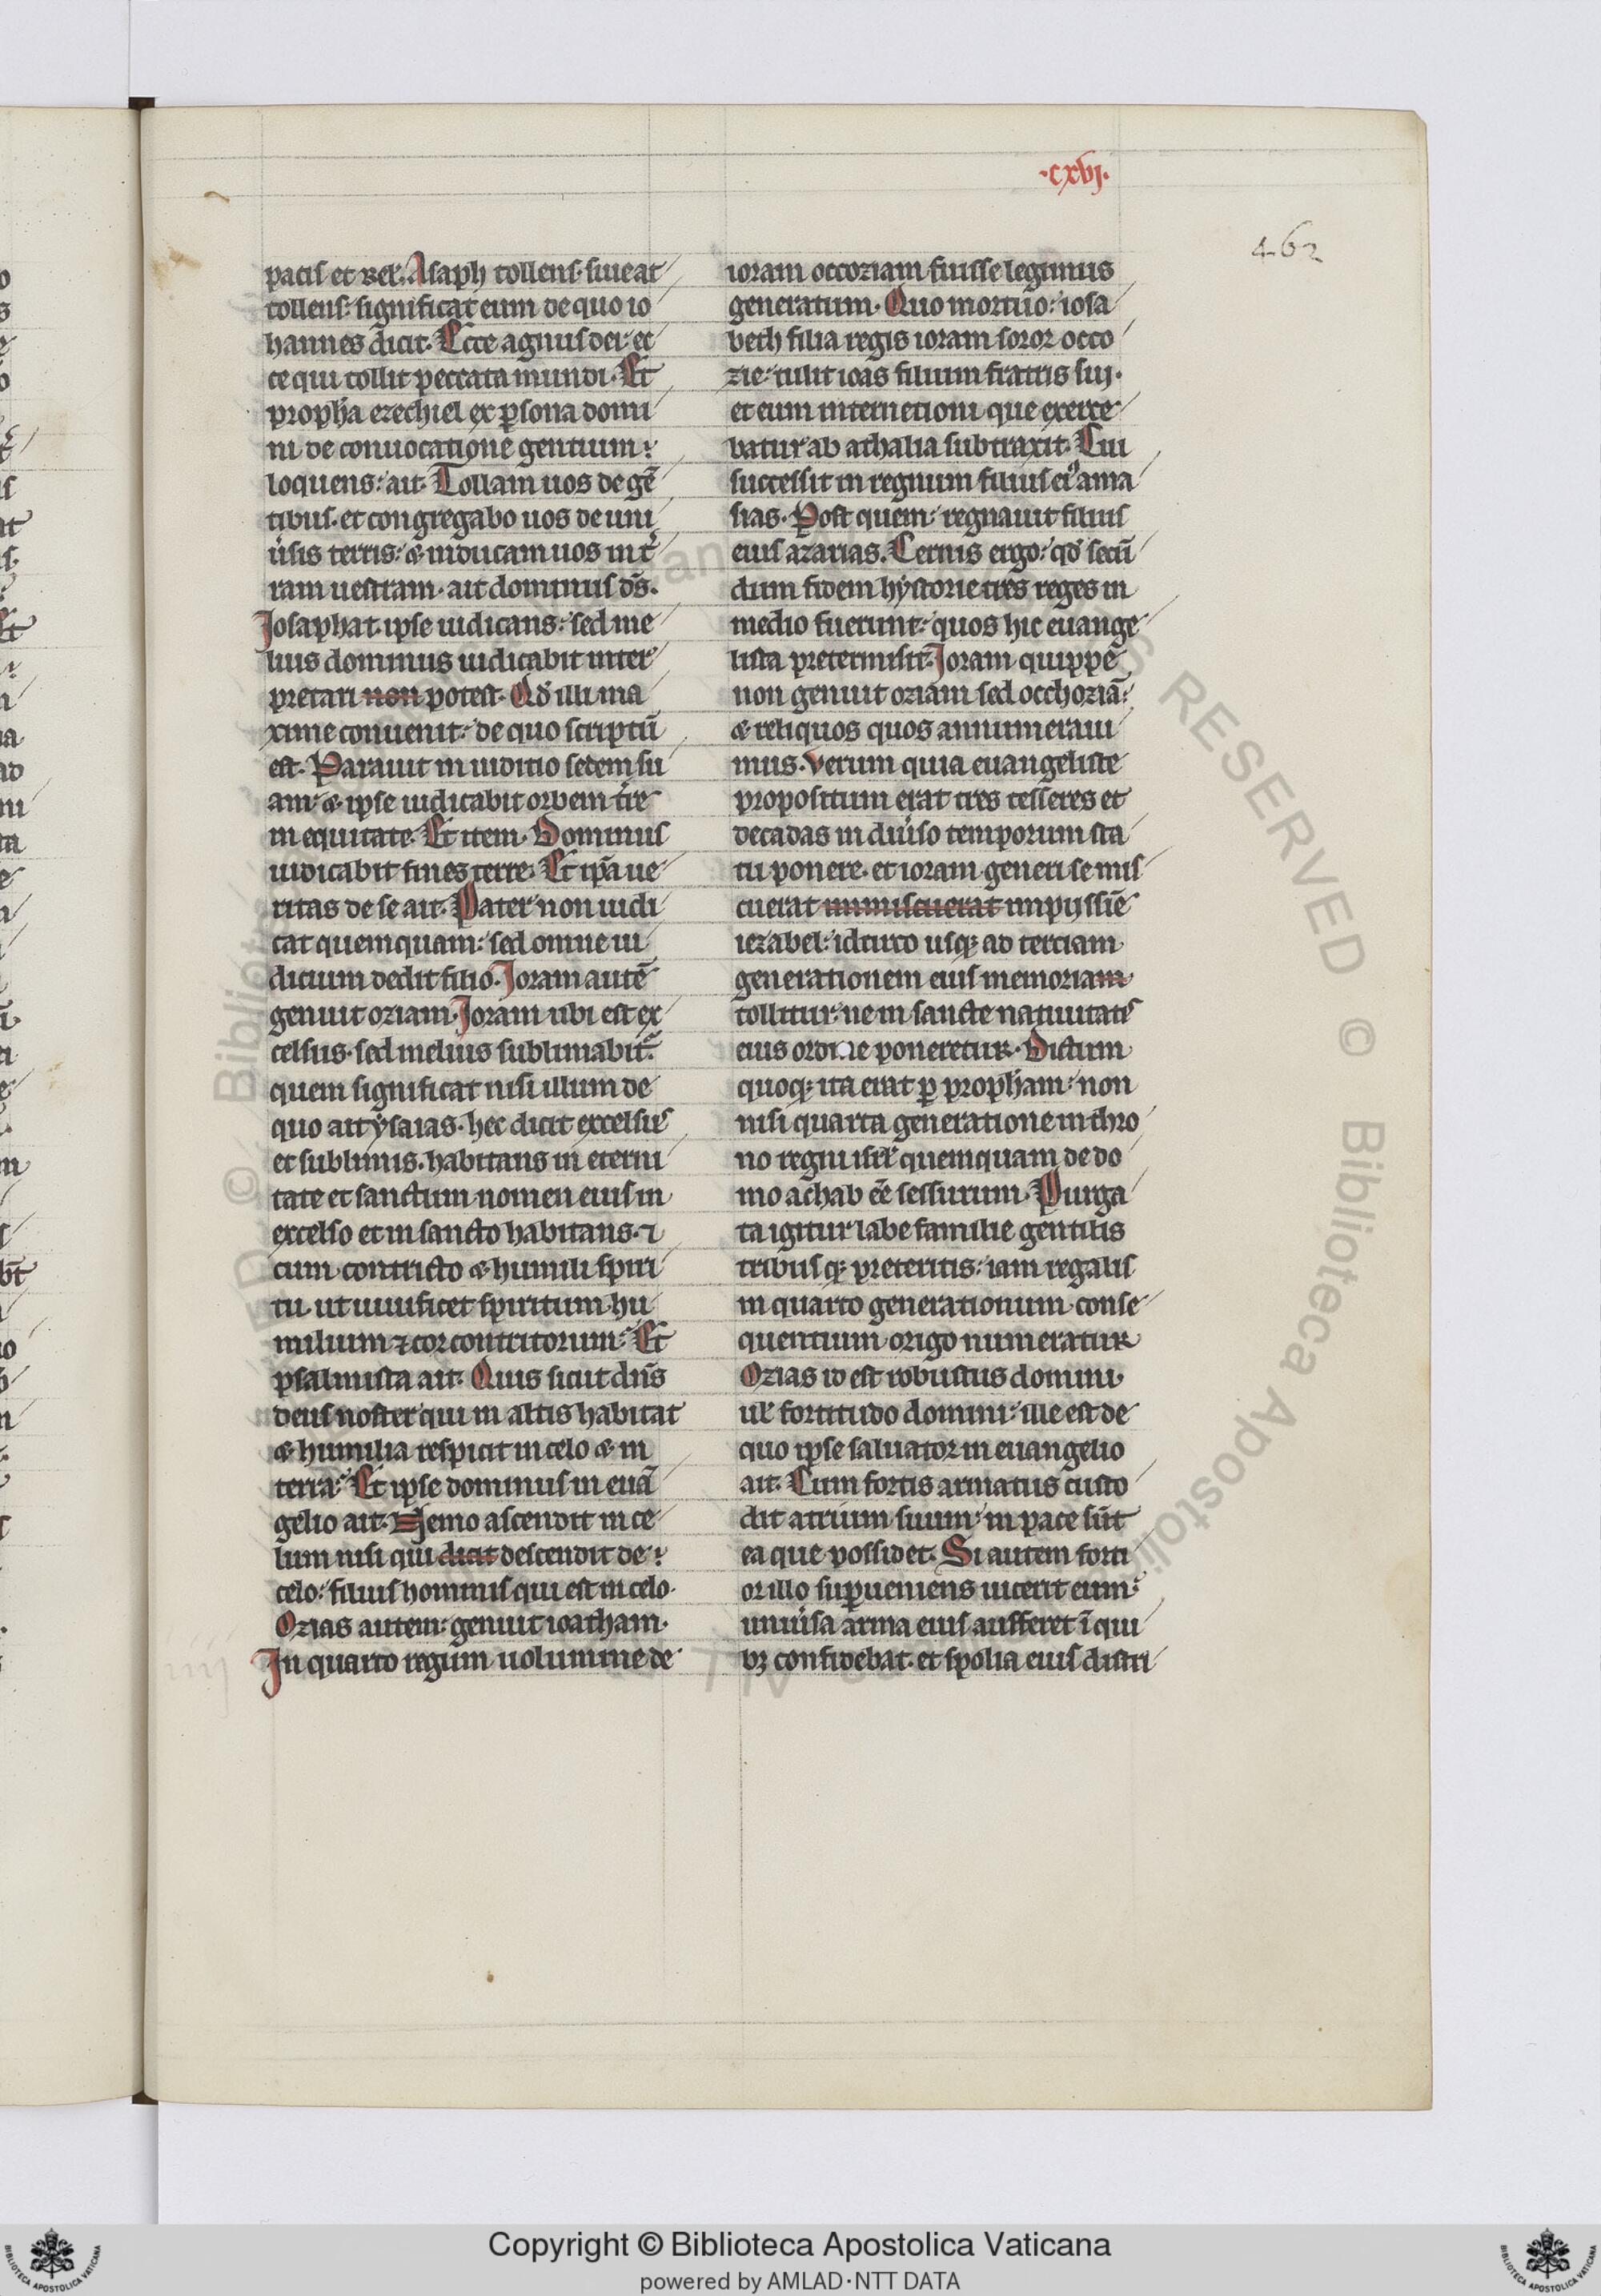 ·cxvj·
462
pacis et rex. Asaph tollens· siue at
tollens: significat eum de quo io
hannes dicit. Ecce agnus dei: ec
ce qui tollit peccata mundi. Et
propha ezechiel ex psona domi
ni de conuocatione gentium:
loquens: ait. Tollam uos de gē
tibus. et congregabo uos de uni
ũsis terris: & inducam uos in t̃
ram uestram· ait dominus d̄s.
Josaphat ipse iudicans: sed me
lius dominus iudicabit inter
pretari non potest. Qd̓ illi ma
xime conuenit: de quo scriptū
est. Parauit in iuditio sedem su
am: & ipse iudicabit orbem t̃re
in equitate. Et item. Dominus
iudicabit fines terre. Et ip̄a ue
ritas de se ait. Pater non iudi
cat quemquam: sed omne iu
dicium dedit filio. Joram autē
genuit oziam. Joram ubi est ex
celsus· sed melius sublimabit̃.
quem significat nisi illum de
quo ait ysaias· hec dicit excelsus
et sublimis. habitans in eterni
tate et sanctum nomen eius in
excelso et in sancto habitans. ⁊
cum contricto & humili spiri
tu· ut uiuificet spiritum hu
milium ⁊ cor contritorum: Et
psalmista ait. Quis sicut dn̄s
deus noster qui in altis habitat
& humilia respicit in celo & in
terra: Et ipse dominus in euā
gelio ait. Nemo ascendit in ce
lum nisi qui dicit descendit de:
celo: filius hominis qui est in celo.
Ozias autem: genuit ioatham.
In quarto regum uolumine de
ioram occoziam fuisse legimus
generatum. Quo mortuo: iosa
beth filia regis ioram soror occo
zie: tulit ioas filium fratris sui·
et eum internetioni que exerce
batur ab athalia subtraxit. Cui
successit in regnum filius ei᷒ ama
sias. Post quem: regnauit filius
eius azarias. Cernis ergo: qd̓ secū
dum fidem hystorie tres reges in
medio fuerunt: quos hic euange
lista pretermisit. Joram quippe
non genuit oziam sed occhoziā:
& reliquos quos annumeraui
mus. Verum quia euangeliste
propositum erat tres tesseres et
decadas in diũso temporum sta
tu ponere. et ioram generi se mis
cuerat immiscuerat impijssiē
iezabel: idcirco usq; ad terciam
generationem eius memoriam
tollitur: ne in sancte natiuitatis
eius ordine poneretur. Dictum
quoq; ita erat p propham: non
nisi quarta generatione in thro
no regni isrl̄ quemquam de do
mo achab eē sessurum. Purga
ta igitur labe familie gentilis
tribusq; preteritis: iam regalis
in quarto generationum conse
quentium origo numeratur
Ozias id est robustus domini·
ul̄ fortitudo domini: ille est de
quo ipse saluator in euangelio
ait. Cum fortis armatus custo
dit atrium suum: in pace sūt
ea que possidet. Si autem forti
or illo supueniens uicerit eum:
uniũsa arma eius aufferet ī qui
bꝫ confidebat. et spolia eius distri
Copyright © Biblioteca Apostolica Vaticana
powered by AMLAD·NTT DATA